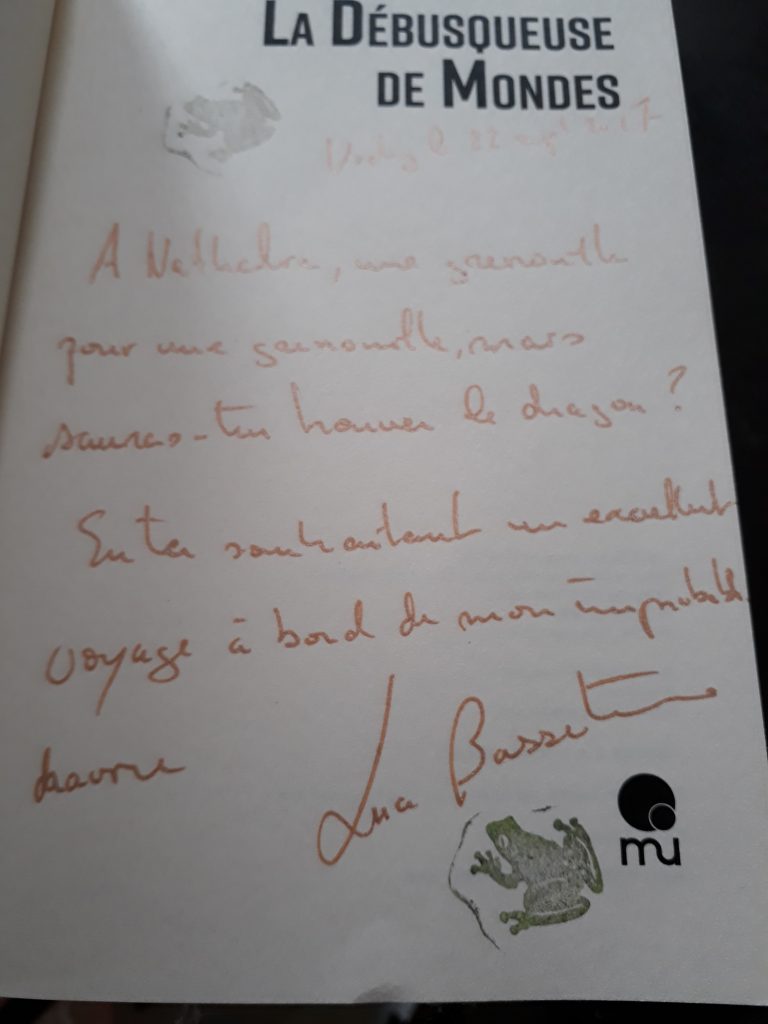 LA DÉBUSQUEUSE
DE MONDES
le 22 2017
A Nathalie, une grenouille
pour une grenouille, mais
sauras-tu trouver le dragon ?
En te souhaitant un excellent
voyage à bord de mon improbable
havre
Luce Basseterre
mu